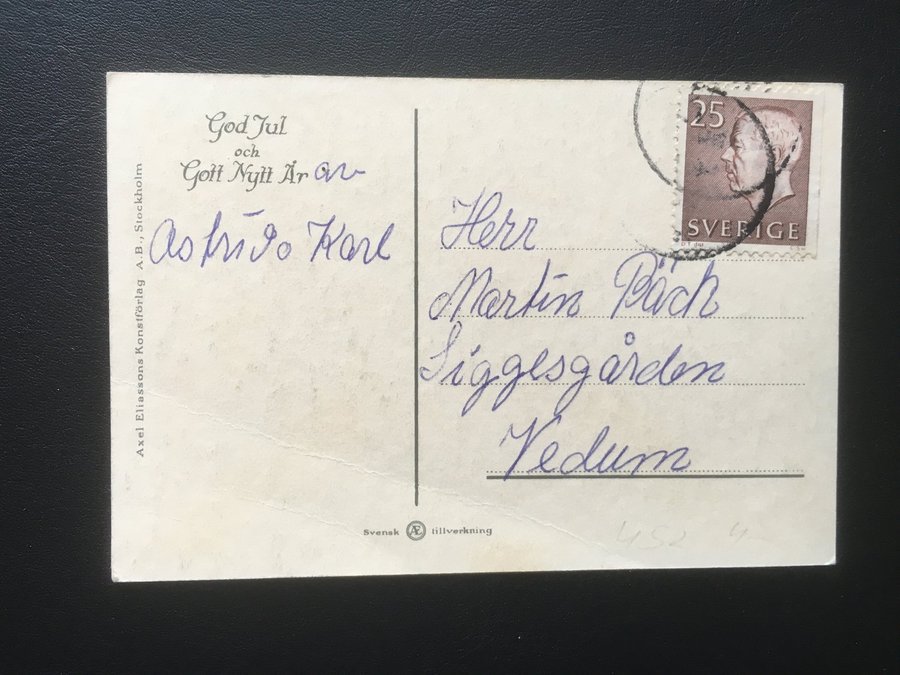 God Jul
och
Gott Nytt År av
Astrid o Karl
Axel Eliassons Konstförlag A.B., Stockholm
25
SVERIGE
Herr
Martin Bäck
Siggesgården
Vedum
Svensk Æ tillverkning
452 4